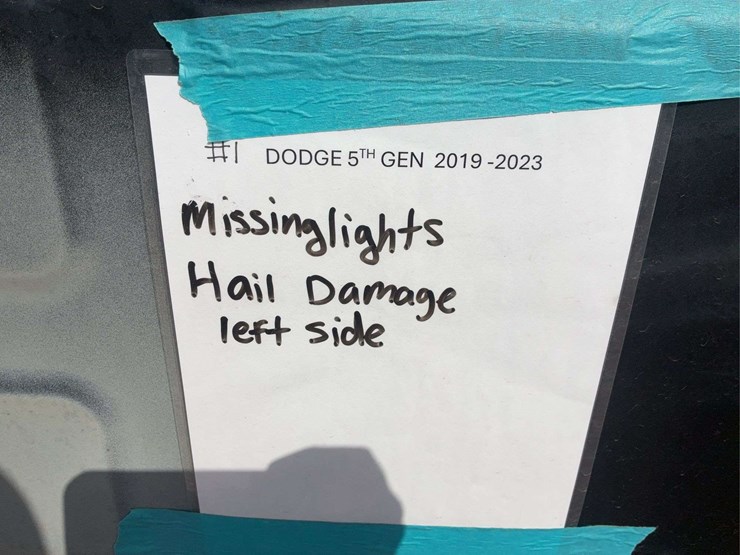 #1 DODGE 5TH GEN 2019-2023
Missing lights
Hail Damage
left side